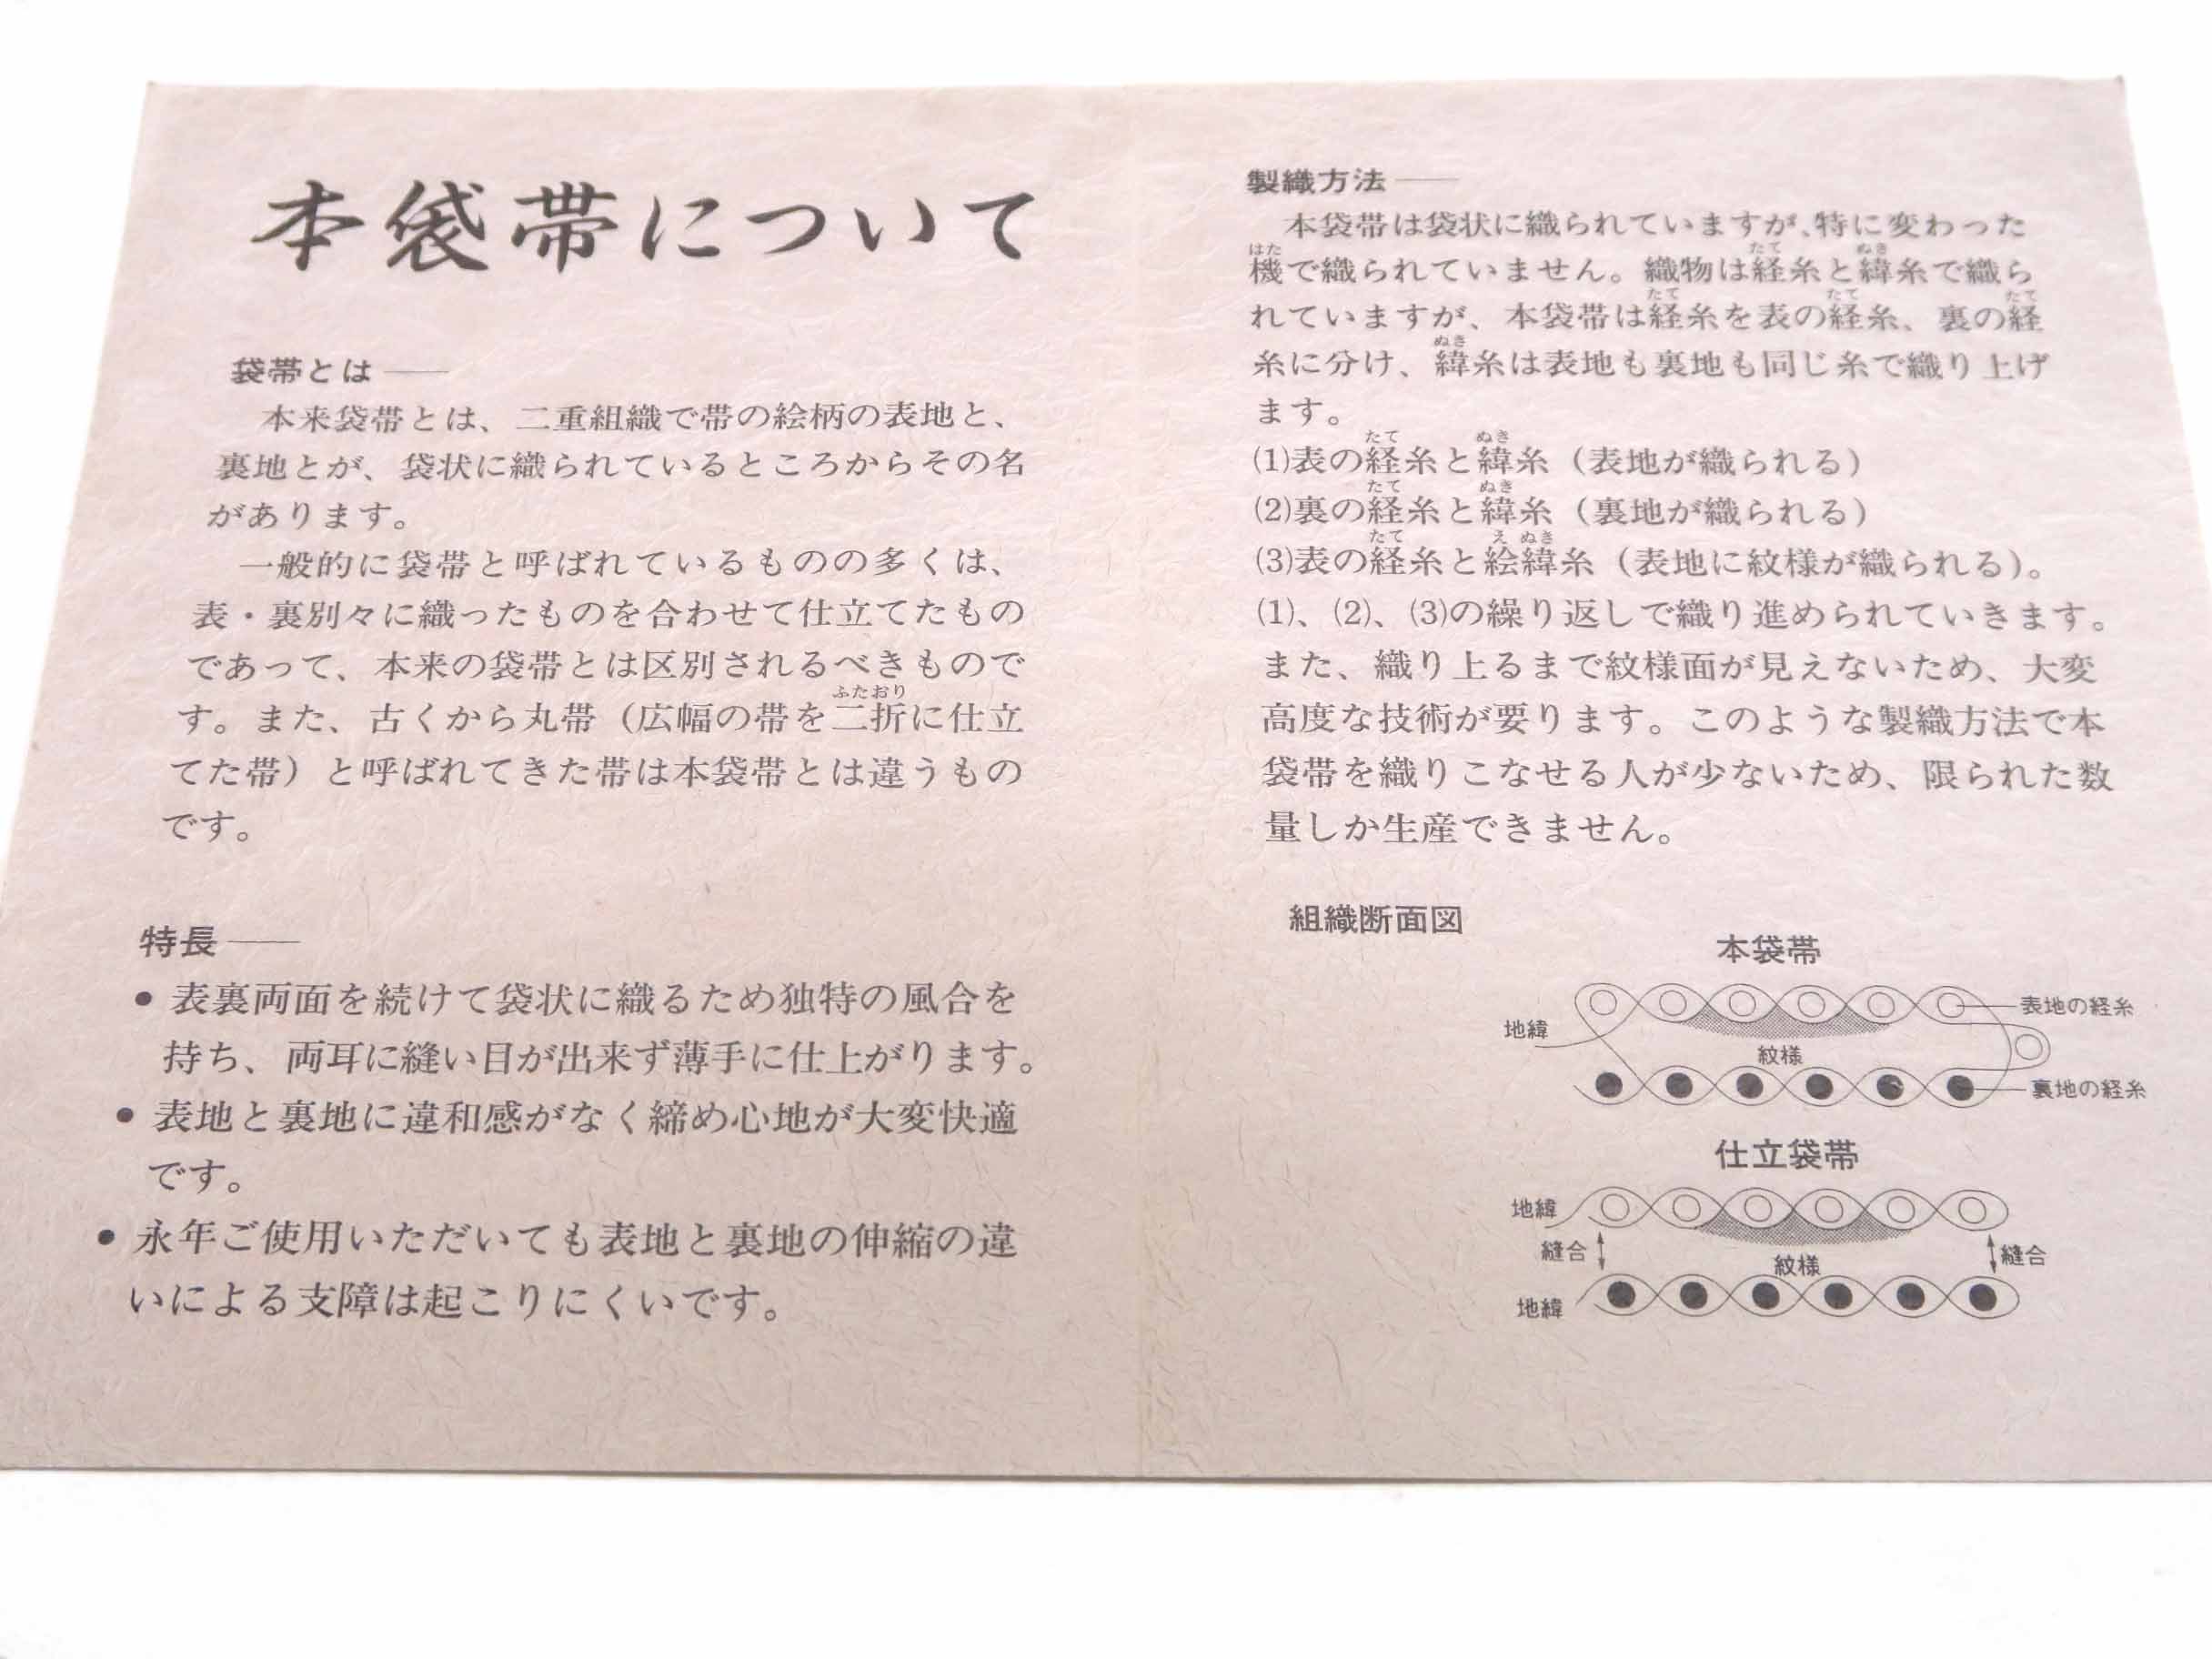 本袋帯について
袋帯とは——
本来袋帯とは、二重組織で帯の絵柄の表地と、
裏地とが、袋状に織られているところからその名
があります。
一般的に袋帯と呼ばれているものの多くは、
表・裏別々に織ったものを合わせて仕立てたもの
であって、本来の袋帯とは区別されるべきもので
ふたおり
す。また、古くから丸帯（広幅の帯を二折に仕立
てた帯）と呼ばれてきた帯は本袋帯とは違うもの
です。
特長——
● 表裏両面を続けて袋状に織るため独特の風合を
持ち、両耳に縫い目が出来ず薄手に仕上がります。
● 表地と裏地に違和感がなく締め心地が大変快適
です。
● 永年ご使用いただいても表地と裏地の伸縮の違
いによる支障は起こりにくいです。
製織方法——
本袋帯は袋状に織られていますが、特に変わった
はた たて ぬき
機で織られていません。織物は経糸と緯糸で織ら
たて たて たて
れていますが、本袋帯は経糸を表の経糸、裏の経
ぬき
糸に分け、緯糸は表地も裏地も同じ糸で織り上げ
ます。
たて ぬき
⑴表の経糸と緯糸（表地が織られる）
たて ぬき
⑵裏の経糸と緯糸（裏地が織られる）
たて え ぬき
⑶表の経糸と絵緯糸（表地に紋様が織られる）。
⑴、⑵、⑶の繰り返しで織り進められていきます。
また、織り上るまで紋様面が見えないため、大変
高度な技術が要ります。このような製織方法で本
袋帯を織りこなせる人が少ないため、限られた数
量しか生産できません。
組織断面図
本袋帯
表地の経糸
地緯
紋様
裏地の経糸
仕立袋帯
地緯
縫合
縫合
紋様
地緯